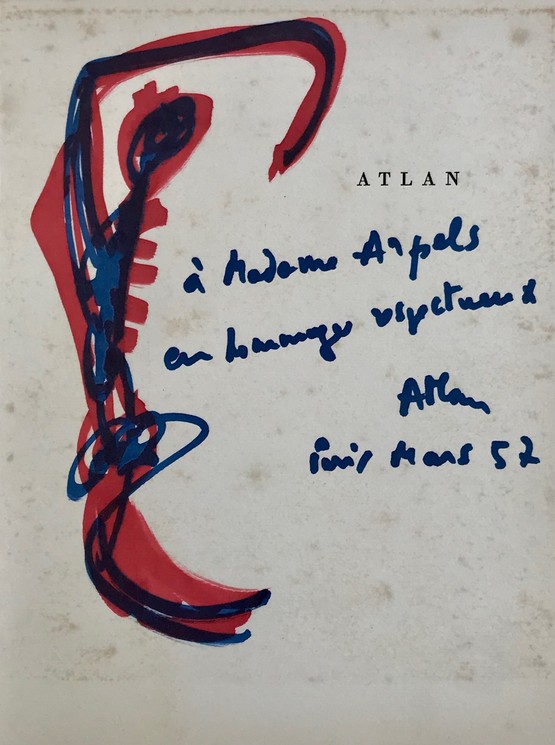 ATLAN
à Madame Arpels
en hommage respectueux
Atlan
Paris Mars 57